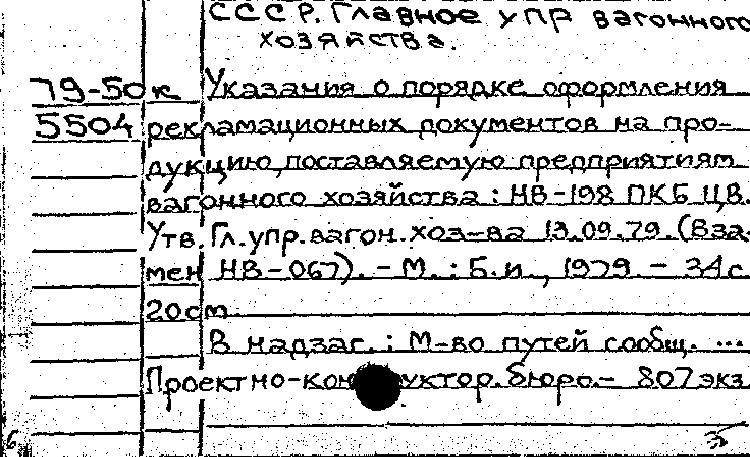 СССР. Главное упр вагонного
хозяйства.
79-50к Указания о порядке оформления
5504 рекламационных документов на про-
дукцию, поставляемую предприятиям
вагонного хозяйства: НВ-198 ПКБ ЦВ.
Утв. Гл. упр. вагон. хоз-ва 13.09.79. (Вза-
мен НВ-067). - М.: Б.и., 1979. - 34с
20см.
В надзаг.: М-во путей сообщ. ...
Проектно- бюро. - 807экз